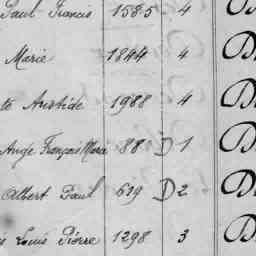 Paul Francis 1585 - 4 D
Marie 1844 4 D
te Aristide 1988 - 4 D
Ange François Marie 88 D 1 D
Albert Paul 619 D 2 D
is Louis Pierre 1298 3 D